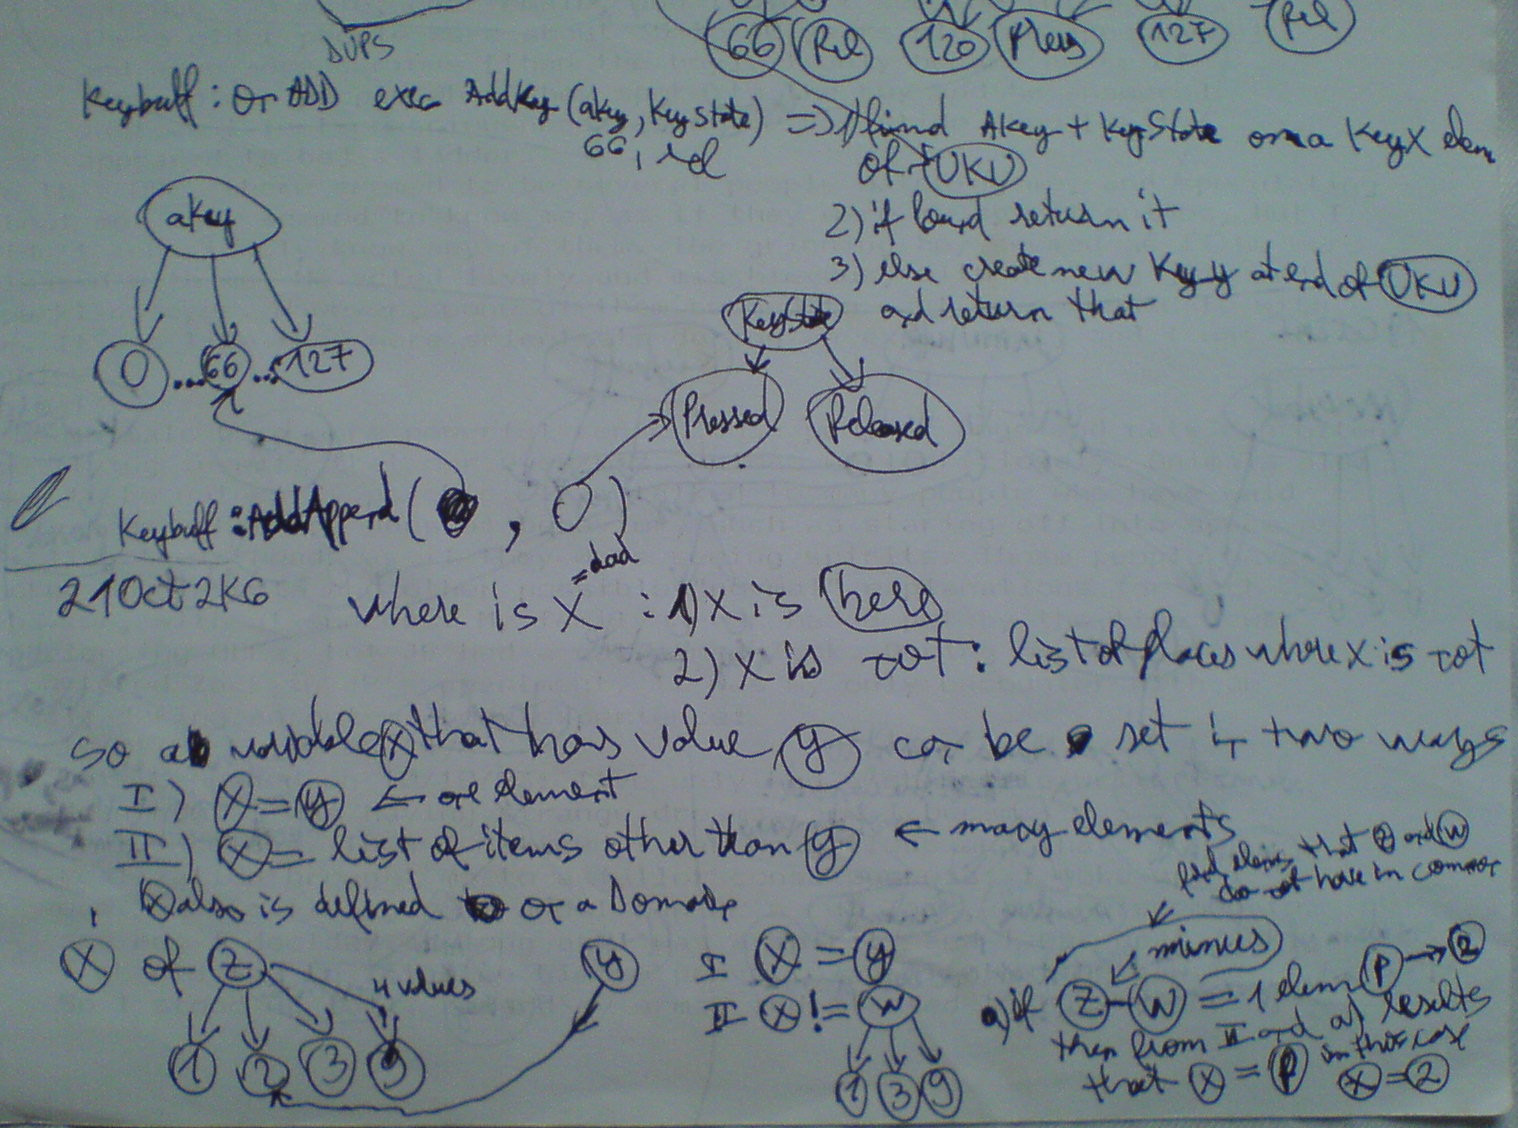 DUPS
66 Rel 120 Press 127 Rel
Keybuff: On ADD exec AddKey (aKey, KeyState) => 1) find AKey + KeyState on a KeyX elem
66, rel
of UKU
2) if found return it
3) else create new Key y at end of UKU
and return that
aKey
0 ... 66 ... 127
KeyState
Pressed Released
Keybuff :AddAppend( , )
21 Oct 2K6
where is X =dad : 1) X is here
2) X is not : list of places where X is not
So a variable X that has value y can be set in two ways
I) X = y <- one element
II) X = list of items other than y <- many elements
X also is defined on a Domain
find elems that Z and W
do not have in common
X of Z
4 values
1 2 3 9
y
I X = y
II X != W
1 3 9
minus
a) if Z - W = 1 elem P -> 2
then from II and a) results
that X = P in this case X = 2